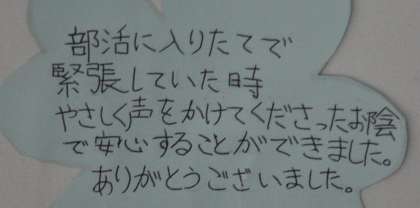 部活に入りたてで
緊張していた時
やさしく声をかけてくださったお陰
で安心することができました。
ありがとうございました。